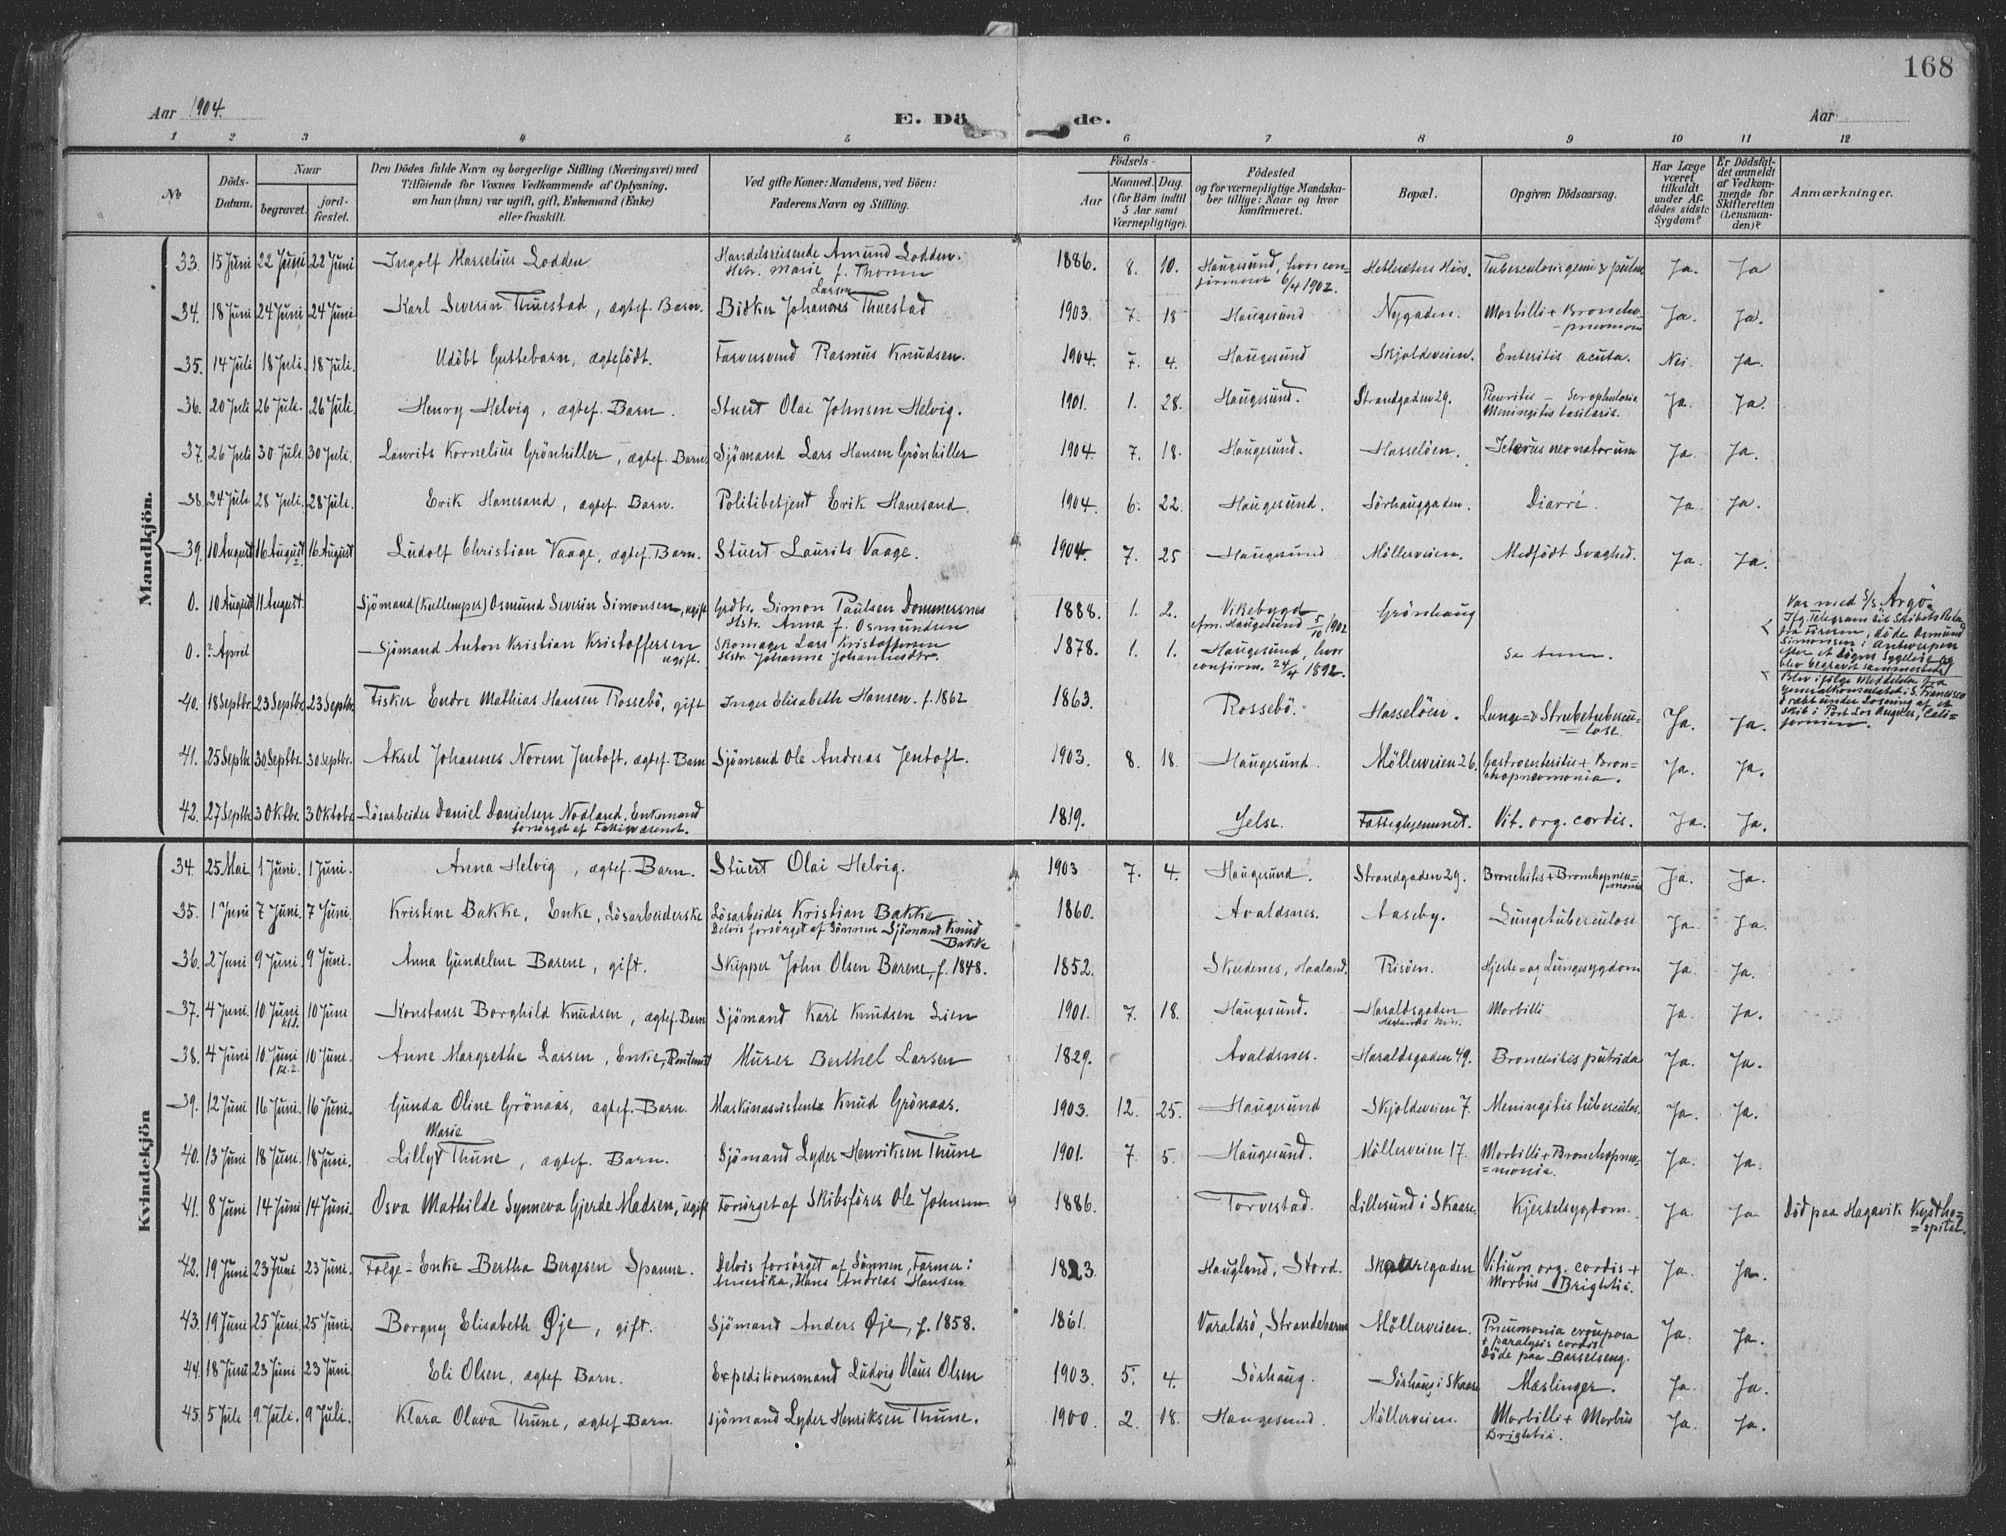 168
Aar 1904.
E. Dö de.
Aar
1 2 3 4 5 6 7 8 9 10 11 12
No
Döds-Datum.
Naar
begravet.
jord-fæstet.
Den Dödes fulde Navn og borgerlige Stilling (Næringsvei) med
Tilföiende for Voxnes Vedkommende af Oplysning,
om han (hun) var ugift, gift, Enkemand (Enke)
eller fraskilt.
Ved gifte Koner: Mandens, ved Börn:
Faderens Navn og Stilling.
Födsels-
Aar
Maaned. Dag.
(for Börn indtil
5 Aar samt
Værnepligtige).
Födested
og for værnepligtige Mandska-
ber tillige: Naar og hvor
konfirmeret.
Bopæl.
Opgiven Dödsaarsag.
Har Læge
været
tilkaldt
under Af-
dödes sidste
Sygdom?
Er Dödsfal-
det anmeldt
af Vedkom-
mende for
Skifteretten
(Lensman-
den)?
Anmærkninger.
Mandkjön.
33. 15 Juni 22 Juni 22 Juni Ingolf Marselius Lodden Handelsreisende Amund Lodden. Hstr. Marie f. Thorsen 1886. 8. 10. Haugesund, hvor con- firmeret 6/4 1902. Ja. Ja
34. 18 Juni 24 Juni 24 Juni Karl Severin Thuestad, ægtef. Barn. Bödker Johannes Larsen Thuestad 1903. 7. 18 Haugesund Nygaden. Morbilli + Broncho- pneumoni Ja. Ja.
35. 14 Juli 18 Juli. 18 Juli. Udöbt Guttebarn, ægtefödt. Farversvend Rasmus Knudsen. 1904. 7. 4. Haugesund Skjoldeveien. Enteritis acuta. Nei. Ja.
36. 20 Juli 26 Juli. 26 Juli. Henry Helvig, ægtef. Barn. Stuert Olai Johnsen Helvig. 1901. 1. 28. Haugesund. Strandgaden 29. Pleuritis – Scrophulosia Meningitis basilaris. Ja. Ja.
37. 26 Juli 30 Juli. 30 Juli. Laurits Kornelius Grönhiller, ægtef. Barn. Sjömand Lars Hansen Grönhiller 1904. 7. 18. Haugesund. Hasselöen. Icterus neonatorum Ja. Ja.
38. 24 Juli 28 Juli. 28 Juli. Erik Hanesand, ægtef. Barn. Politibetjent Erik Hanesand. 1904. 6. 22. Haugesund. Sörhauggaden. Diarré Ja Ja.
39. 10 August 16 August 16 August Ludolf Christian Vaage, ægtef. Barn. Stuert Laurits Vaage. 1904. 7. 25 Haugesund Möllerveien. Medfödt Svaghed. Ja. Ja.
0. 10 August 11 August. Sjömand (Kullemper) Osmund Severin Simonsen, ugift Grdbr. Simon Paulsen Dommersnes Hstr. Anna f. Osmundsen 1888. 1. 2. Vikebygd cfm. Haugesund 5/10 1902 Grönhaug Var med S/S. Argo. Ifg. Telegram til Skibets Rederi fra Firesen, döde Osmund Simonsen i Antwerpen efter et Dögns Sygeleie og blev begravet sammesteds
0. ? April Sjömand Anton Kristian Kristoffersen ugift. Skomager Lars Kristoffersen Hstr. Johanne Johannesdtr. 1878. 1. 1. Haugesund, hvor confirm. 24/4 1892. Blev i fölge Meddelelse fra Generalkonsulatet i S. Francisco dræbt under Losning af et Skib i Port Los Angeles, Cali- fornien.
40. 18 Septbr. 23 Septbr. 23 Septbr. Fisker Endre Mathias Hansen Rossebö, gift Inger Elisabeth Hansen. f. 1862 1863. Rossebö. Hasselöen. Lunge= & Strubetubercu- =lose. Ja. Ja.
41. 25 Septbr. 30 Septbr. 30 Septbr. Aksel Johannes Norem Jentoft. ægtef. Barn Sjömand Ole Andreas Jentoft. 1903. 8. 18. Haugesund. Möllerveien 26. Gastroenteritis + Bron- chopneumonia. Ja. Ja.
42. 27 Septbr. 3 Oktbr. 3 Oktobr. Lösarbeider Daniel Danielsen Nodland. Enkemand forsörget af Fattigvæsenet. 1819. Jelse. Fattighjemmet. Vit. org. cordis. Ja. Ja.
Kvindekjön
34. 25 Mai 1 Juni. 1 Juni. Anna Helvig, ægtef. Barn. Stuert Olai Helvig. 1903 7. 4. Haugesund. Strandgaden 29. Bronchitis + Bronchopneu= =monia Ja. Ja.
35. 1 Juni 7 Juni. 7 Juni. Kristine Bakke, Enke, Lösarbeiderske Lösarbeider Kristian Bakke Delvis forsörget af Sönnen Sjömand Knud Bakke 1860. Avaldsnes. Aaseby. Lungetuberculose Ja. Ja.
36. 2 Juni 9 Juni. 9 Juni. Anna Gundelene Barene, gift. Skipper John Olsen Barene, f. 1848. 1852. Skudenes, Haaland. Risöen. Hjerte= og Lungesygdom Ja. Ja.
37. 4 Juni. 10 Juni 10 Juni Konstanse Borghild Knudsen, ægtef. Barn Sjömand Karl Knudsen Lien 1901. 7. 18. Haugesund. Haraldsgaden Morbilli Ja. Ja.
38. 4 Juni 10. Juni 10 Juni. Anne Margrethe Larsen, Enke, Murer Berthel Larsen 1829. Avaldsnes. Haraldsgaden 49. Bronchitis putrida Ja. Ja.
39. 12 Juni 16 Juni. 16 Juni. Gunda Oline Grönaas, ægtef. Barn. Maskinassistent Knud Grönaas. 1903. 12. 25. Haugesund Skjoldeveien 7. Meningitis tuberculos. Ja. Ja.
40. 13 Juni 18 Juni. 18 Juni. Lilly Marie Thune, ægtef. Barn. Sjömand Lyder Henriksen Thune 1901. 7. 5. Haugesund. Möllerveien 17. Morbilli + Bronchopneu- =monia. Ja. Ja.
41. 8 Juni 14 Juni 14 Juni. Osva Mathilde Synneva Gjerde Madsen, ugift Forsörget af Skibsförer Ole Johnsen 1886. Torvestad. Lillesund i Skaare. Kjertelsygdom. Ja. Ja Död paa Hagavik Kystho= =spital.
42. 19 Juni 23 Juni 23 Juni. Folge-Enke Bertha Bergesen Spanne. Delvis forsörget af Sönnen, Farmer i Amerika, Hans Andreas Hansen 1823. Haugland, Stord. Skaaregaden Vitium org. cordis + Morbus Brightii. Ja. Ja.
43. 19 Juni 25 Juni. 25 Juni. Borgny Elisabeth Øje, gift. Sjömand Anders Øje, f. 1858. 1861. Varaldsö, Strandebarm Möllerveien. Pneumonia crouposa + paralysis cordis. Döde paa Barselseng. Ja. Ja.
44. 18 Juni 23 Juni 23 Juni. Eli Olsen, ægtef. Barn. Expeditionsmand Ludvig Olaus Olsen 1903. 5. 4. Sörhaug. Sörhaug i Skaare Mæslinger. Ja. Ja.
45. 5 Juli 9 Juli. 9 Juli. Klara Olava Thune, ægtef. Barn. Sjömand Lyder Henriksen Thune. 1900. 2. 18. Haugesund. Möllerveien. Morbilli + Morbus Brightii. Ja. Ja.